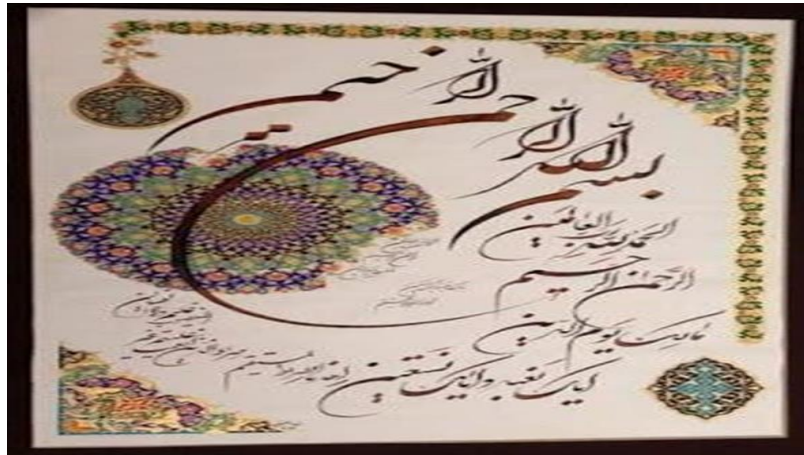 بسم الله الرحمن الرحیم
الحمد لله رب العالمین
الرحمن الرحیم
مالک یوم الدین
ایاک نعبد و ایاک نستعین
اهدنا الصراط المستقیم
صراط الذین انعمت علیهم غیر
المغضوب علیهم ولا الضالین